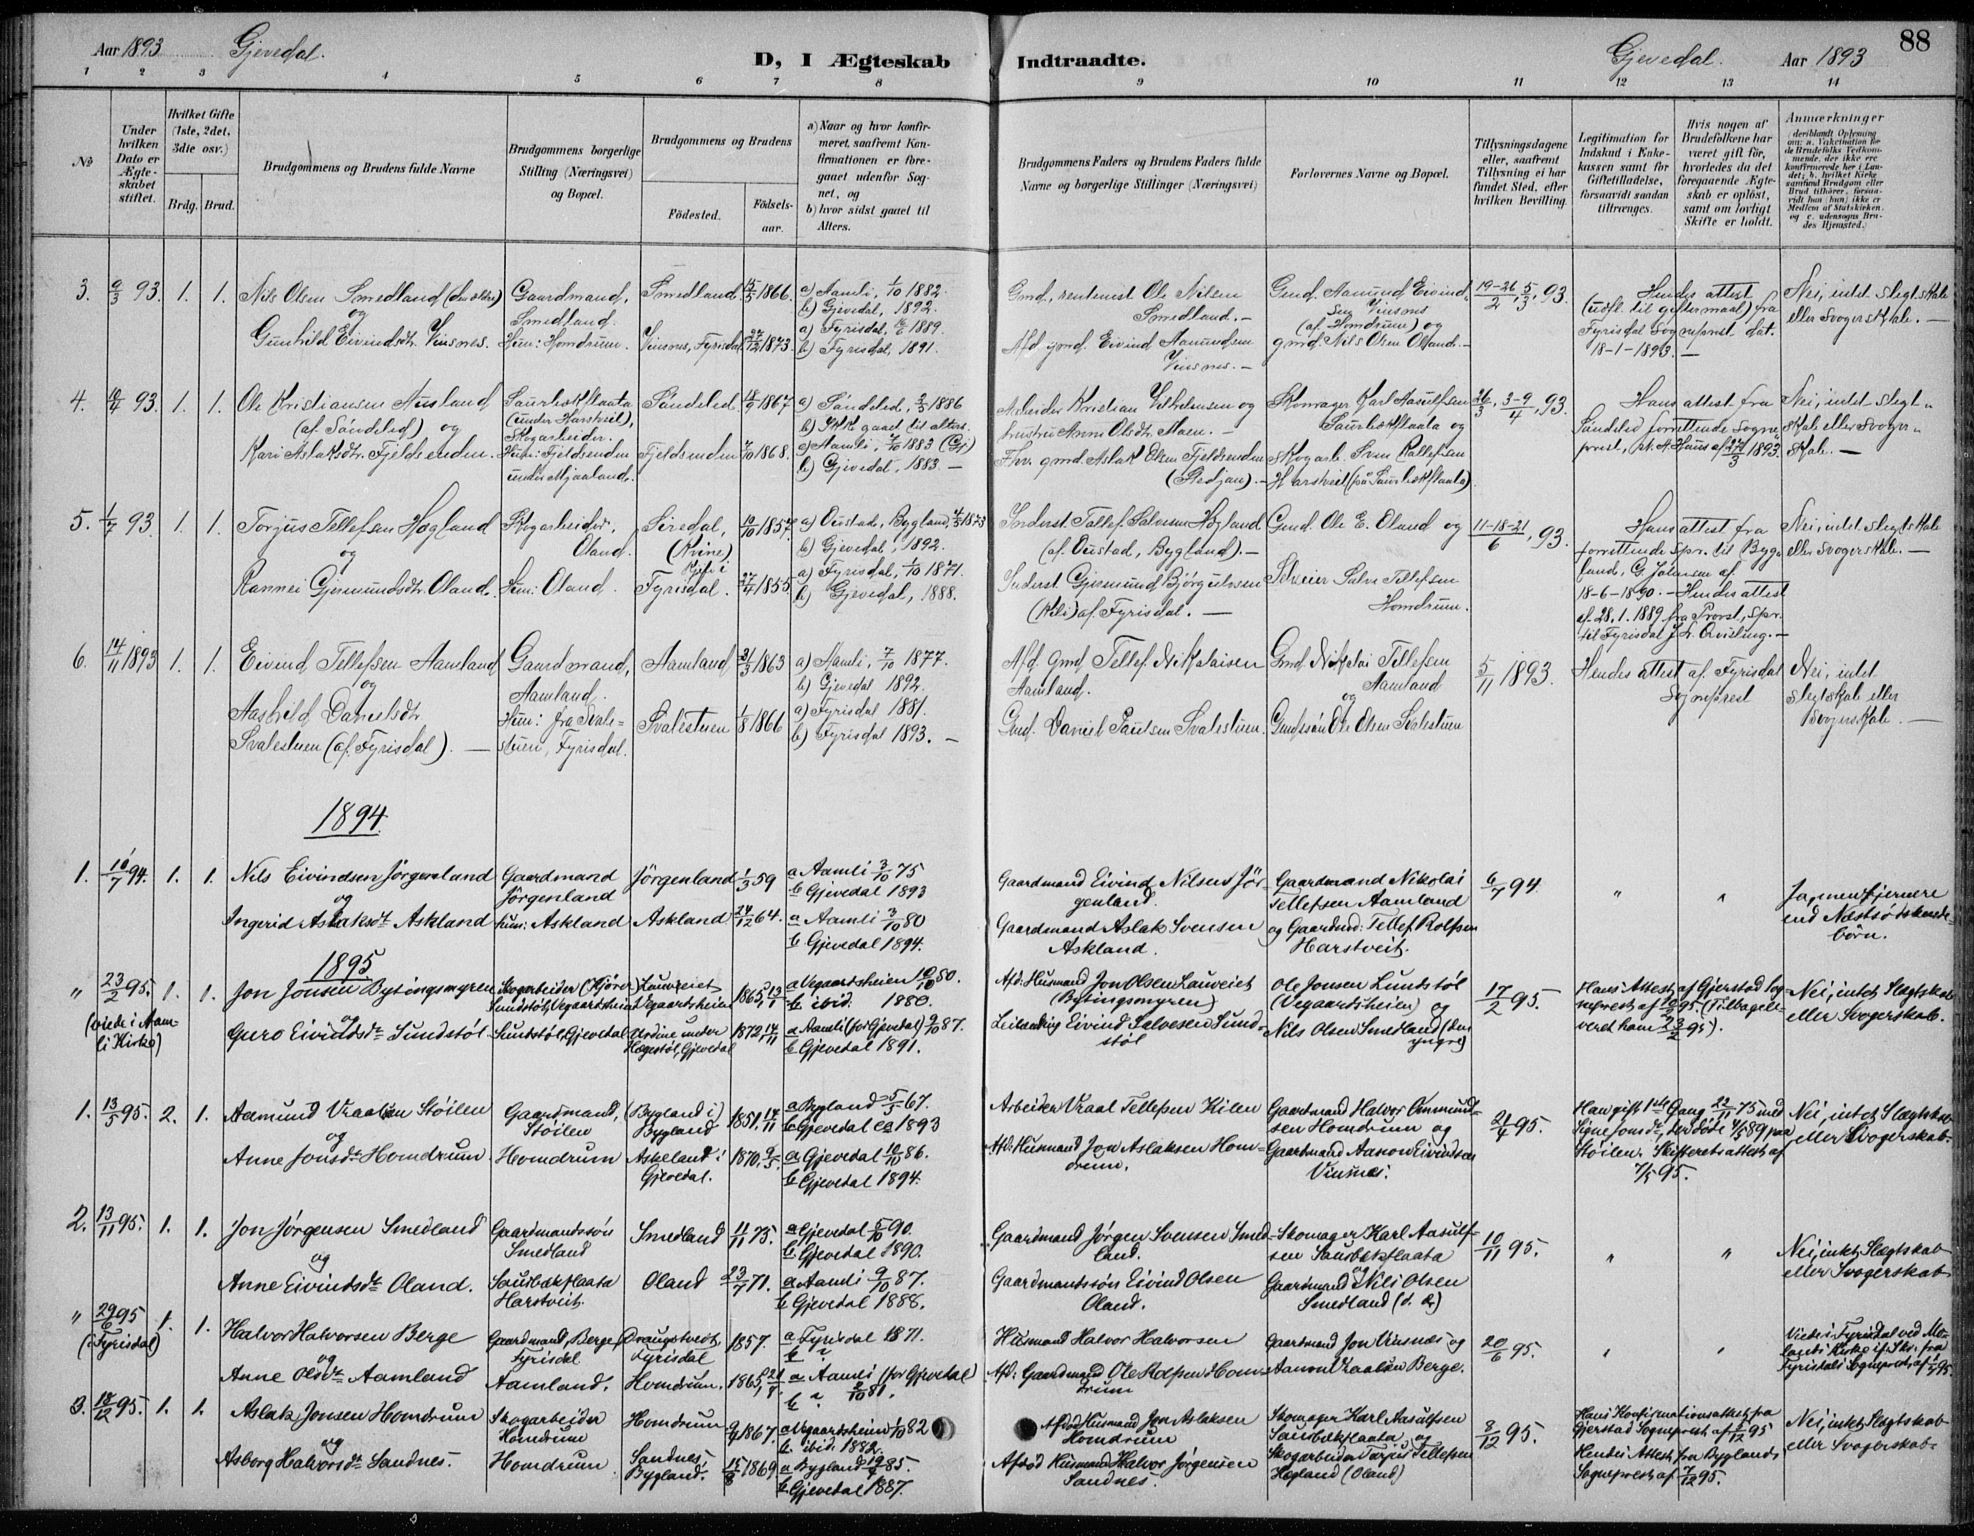 Aar 1893 Gjevedal.
D, I Ægteskab Indtraadte.
Gjevedal. Aar 1893
88
1 2 3 4 5 6 7 8 9 10 11 12 13 14
No
Under hvilken Dato er Ægteskabet stiftet.
Hvilket Gifte (1ste, 2det, 3die osv.)
Brdg. Brud.
Brudgommens og Brudens fulde Navne
Brudgommens borgerlige Stilling (Næringsvei) og Bopæl.
Brudgommens og Brudens
Födested.
Födsels-aar.
a) Naar og hvor konfirmeret, saafremt Konfirmationen er foregaaet udenfor Sognet, og
b) hvor sidst gaaet til Alters.
Brudgommens Faders og Brudens Faders fulde Navne og borgerlige Stillinger (Næringsvei)
Forlovernes Navne og Bopæl.
Tillysningsdagene eller, saafremt Tillysning ei har fundet Sted, efter hvilken Bevilling.
Legitimation for Indskud i Enkekassen samt for Giftetilladelse, forsaavidt saadan tiltrænges.
Hvis nogen af Brudefolkene har været gift för, hvorledes da det foregaaende Ægteskab er oplöst, samt om lovligt Skifte er holdt.
Anmærkninger
3. 9/3 93. 1. 1. Nils Olsen Smedland (den ældre)
og
Gunhild Eivindsdtr. Vinsnes.
Gaardmand, Smedland.
Hun: Homdrum.
Smedland 15/5 1866.
Vinsnes, Fyrisdal 27/12 1873.
a) Aamli, 1/10 1882.
b) Gjevedal, 1892.
a) Fyrisdal, 1889.
b) Fyrisdal, 1891.
Gmd, rentenist Ole Nilsen Smedland. —
Afd. gmd. Eivind Aamundsen Vinsnes. —
Gmd. Aamund Eivindsen Vinsnes (af Homdrum) og gmd. Nils Olsen Oland. —
19-26/2, 5/3, 93.
Hendes attest (udfl. til giftermaal) fra Fyrisdal Sogneprest dat. 18-1-1893. —
Nei, intet slegtskab eller Svogerskab. —
4. 10/4 93. 1. 1. Ole Kristiansen Ausland
(af Söndeled) og
Kari Aslaksdtr. Fjeldsenden.
Saurbækflaata (under Harstveit), Skogarbeider.
Hun: Fjeldsenden under Mjaaland.
Söndeled 18/9 1867
Fjeldsenden 7/10 1868.
a) Söndeled, 1886
b) Ikke gaaet til alters.
a) Aamli, 1883 (Gj)
b) Gjevedal, 1883. —
Arbeider Kristian Vilhelmsen og hustru Anne Olsdtr. Maen. —
Fhv. gmd Aslak Olsen Fjeldsenden
Skomager Karl Aasulfsen Saurbækflaata og
Skogarb. Sven Rallefsen Harstveit (på Saurbækflaata)
26/3, 3-9/4, 93.
Hans attest fra Söndeled forrettende Sogneprest, af 27/3 1893.
Nei, intet slegtskab eller Svogerskab. —
5. 1/7 93. 1. 1. Torjus Tellefsen Högland
og
Rannei Gjermundsdtr. Oland.
Skogarbeider, Oland.
Hun: Oland.
Siredal, (Kvine) 10/10 1857.
Fyrisdal. 27/4 1855.
a) Oustad, Bygland, 1873
b) Gjevedal, 1892.
a) Fyrisdal, 1/10 1871.
b) Gjevedal, 1888.
Inderst Tallef Salvesen Högland (af Oustad, Bygland). —
Inderst Gjermund Björgulvsen (Kili) af Fyrisdal. —
Gmd. Ole E. Oland og
Selveier Salve Tellefsen Homdrum.
11-18-21/6, 93.
Hans attest fra forrettende Spr. til Bygland, G. Johnsen af 18-6-1890. — Hendes attest af 28.1.1889 fra Provst, Spr. til Fyrisdal J. L. Qvisling. —
Nei, intet slegtskab eller svogerskab. —
6. 14/11 1893 1. 1. Eivind Tellefsen Aamland
og
Aashild Danielsdtr. Svalestuen (af Fyrisdal). —
Gaardmand, Aamland.
Hun: fra Svalestuen, Fyrisdal.
Aamland 31/3 1863
Svalestuen 1/8 1866
a) Aamli, 7/10 1877.
b) Gjevedal 1892.
a) Fyrisdal 1881.
b) Fyrisdal 1893. —
Afd. Gmd. Tellef Nikolaisen Aamland.
Gmd. Daniel Paulsen Svalestuen.
Gmd. Nikolai Tellefsen Aamland
og
Gmdssön Ole Olsen Svalestuen
5/11 1893.
Hendes attest af Fyrisdal Sogneprest
Nei, intet slegtskab eller Svogerskab. —
1894.
1. 10/7 94. 1. 1. Nils Eivindsen Jörgenland
og
Ingerid Aslaksdtr Askland
Gaardmand Jörgenland
hun: Askland
Jörgenland 1/3 59
Askland 24/12 64.
a Aamli 3/10 75
b Gjevedal 1893
a Aamli 3/10 80
b Gjevedal 1894.
Gaardmand Eivind Nilsen Jörgenland.
Gaardmand Aslak Svensen Askland.
Gaardmand Nikolai Tellefsen Aamland
og Gaardmd: Tellef Rolfsen Harstveit.
6/7 94.
" "
Ja, men fjernere end Næstsödskendebörn.
1895
" 23/2 95. 1. 1. (viede i Aamli Kirke)
Jon Jonsen Bytingsmyren
og
Guro Eivindsdtr Lundstöl
Skogarbeider Lundstöl, Vegaardsheien
Lundstöl, Gjevedal
Lauveiet Vegaardsheien 1865, 13/1
under Hægestöl, Gjevedal 1872, 14/11
a Vegaardsheien 10/10 80.
b ibid. 1880.
a Aamli (for Gjevedal) 9/10 87.
b Gjevedal 1891.
Afd. Husmand Jon Olsen Lauveiet (Bytingsmyren)
Leilending Eivind Salvesen Lundstöl
Ole Jonsen Lundstöl (Vegaardsheien) og
Nils Olsen Smedland (den yngre)
17/2 95.
Hans Attest af Gjerstad Sogneprest af 95. (Tilbageleveret ham 23/2 95).
Nei, intet Slægtskab eller Svogerskab.
1. 13/5 95. 2. 1. Aamund Vraalsen Stöilen
og
Anne Jonsdtr Homdrum
Gaardmand, Stöilen
Homdrum
(Bygland i) Bygland 1851, 14/11
Askeland i Gjevedal. 1870, 9/5.
a Bygland 5/5 67.
b Gjevedal ca 1893
a Gjevedal 10/10 86.
b Gjevedal 1894.
Arbeider Vraal Tellefsen Kilen
Afd. Husmand Jon Aslaksen Homdrum.
Gaardmand Halvor Ommundsen Homdrum og
Gaardmand Aanon Eivindsen Vinsnes.
21/4 95.
Han gift 1ste Gang 22/11 75 med Signe Jonsdtr, der döde 89 paa Stöilen. Skifteretsattest af 7/5 95.
Nei, intet Slægtskab eller Svogerskab.
2. 13/11 95. 1. 1. Jon Jörgensen Smedland
og
Anne Eivindsdtr Oland.
Gaardmandssön Smedland
Saurbækflaata Harstveit.
Smedland 11/11 73.
Oland 23/7 71.
a Gjevedal 5/10 90.
b Gjevedal 1890.
a Aamli 9/10 87.
b Gjevedal 1888.
Gaardmand Jörgen Svensen Smedland.
Gaardmandssön Eivind Olsen Oland.
Skomager Karl Aasulfsen Saurbekflaata
og
Gaardmand Nils Olsen Smedland (d. æ)
10/11 95.
" "
Nei, intet Slægtskab eller Svogerskab
" 29/6 95 (i Fyrisdal) 1. 1. Halvor Halvorsen Berge
og
Anne Olsdtr Aamland
Gaardmand, Berge, Fyrisdal
Aamland.
Fyrisdal 1857.
Homdrum. 1865,
a Fyrisdal 1871.
b "
a Aamli (for Gjevedal) 2/10 81.
b "
Husmand Halvor Halvorsen
Afd: Gaardmand Ole Rolfsen Homdrum
Gaardmand Jon Vinsnæs og
Aanon Vraalsen Berge.
20/6 95.
" "
Viede i Fyrisdal ved Molands Kirke
3. 18/12 95. 1. 1. Aslak Jonsen Homdrum
og
Asborg Halvorsdtr Sandnes.
Skogarbeider Homdrum
Homdrum
Homdrum 9/4 1867.
Sandnes Bygland. 15/8 1869
a Vegaardsheien 1/10 82
b ibid. 1882.
a Bygland 85.
b Gjevedal 1887.
Afdöd Husmand Jon Aslaksen Homdrum
Afdöd Husmand Halvor Jörgensen Sandnes.
Skomager Karl Aasulfsen Saurbekflaata og
Skogarbeider Torjus Tellefsen Högland (Oland)
8/12 95.
Hans Konfirmationsattest fra Gjerstad Sogneprest af 95
Hendes Attest fra Byglands Sogneprest af 7/12 95.
Nei, intet Slægtskab eller Svogerskab.